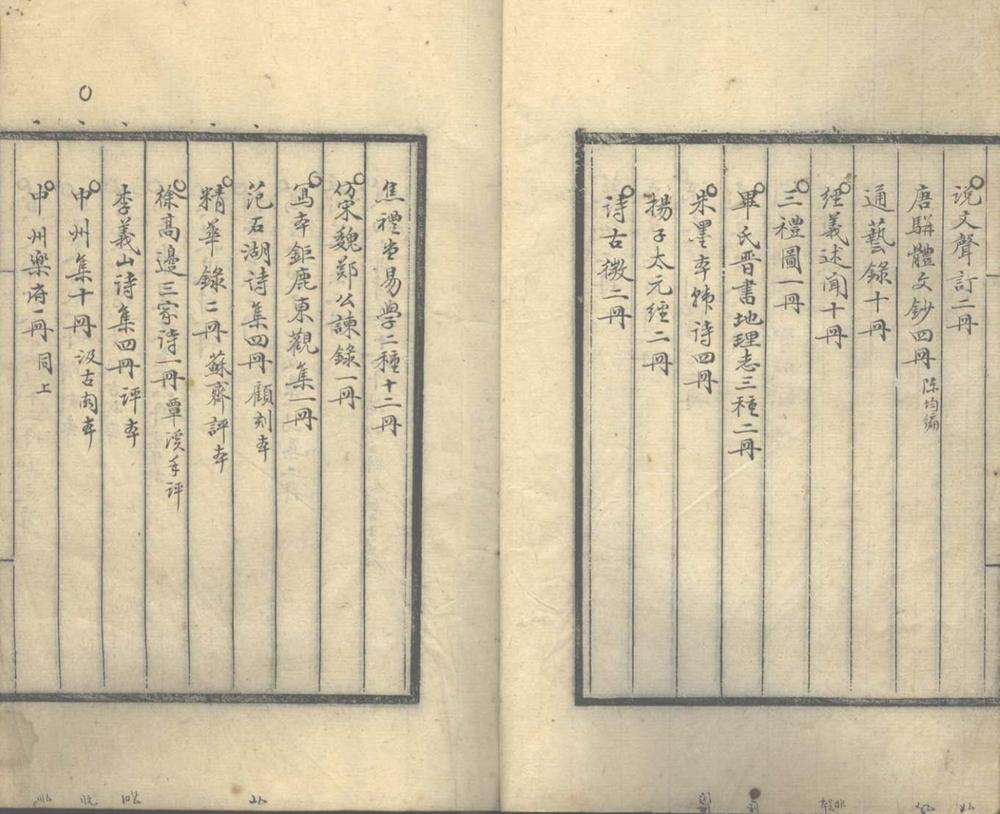 说文聲訂二冊
唐駢體文鈔四冊 陈均编
通藝錄十冊
经義述闻十冊
三禮圖一冊
畢氏晋書地理志三種二冊
朱墨本韩诗四冊
揚子太元经二冊
诗古微二冊
焦禮堂易学二種十二冊
仿宋魏郑公諫錄一冊
寫本鉅鹿東觀集一冊
范石湖诗集四冊 顧刻本
精華錄二冊 蘇齋評本
徐高邉三家诗一冊 覃溪手评
李義山诗集四冊 评本
中州集十冊 汲古阁本
中州乐府一冊 同上